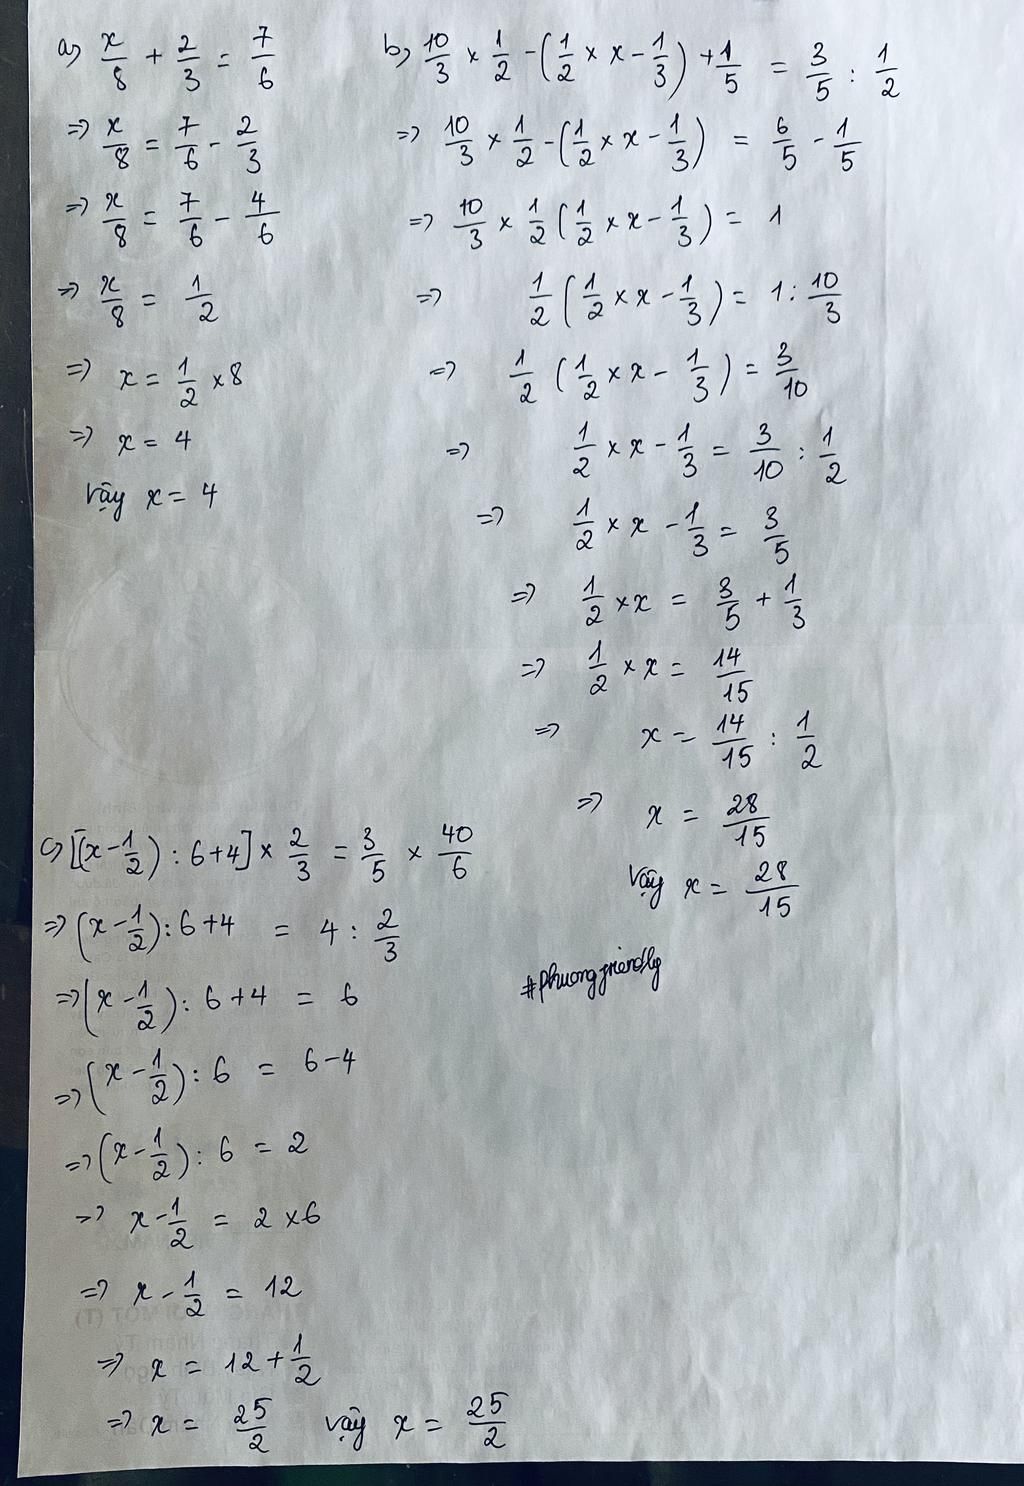 a) x/8 + 2/3 = 7/6
=> x/8 = 7/6 - 2/3
=> x/8 = 7/6 - 4/6
=> x/8 = 1/2
=> x = 1/2 × 8
=> x = 4
Vậy x = 4
b) 10/3 × 1/2 - (1/2 × x - 1/3) + 1/5 = 3/5 : 1/2
=> 10/3 × 1/2 - (1/2 × x - 1/3) = 6/5 - 1/5
=> 10/3 × 1/2 (1/2 × x - 1/3) = 1
=> 1/2 (1/2 × x - 1/3) = 1 : 10/3
=> 1/2 (1/2 × x - 1/3) = 3/10
=> 1/2 × x - 1/3 = 3/10 : 1/2
=> 1/2 × x - 1/3 = 3/5
=> 1/2 × x = 3/5 + 1/3
=> 1/2 × x = 14/15
=> x = 14/15 : 1/2
=> x = 28/15
Vậy x = 28/15
#phuongfriendly
c) [(x - 1/2) : 6 + 4] × 2/3 = 3/5 × 40/6
=> (x - 1/2) : 6 + 4 = 4 : 2/3
=> (x - 1/2) : 6 + 4 = 6
=> (x - 1/2) : 6 = 6 - 4
=> (x - 1/2) : 6 = 2
=> x - 1/2 = 2 × 6
=> x - 1/2 = 12
=> x = 12 + 1/2
=> x = 25/2 vậy x = 25/2